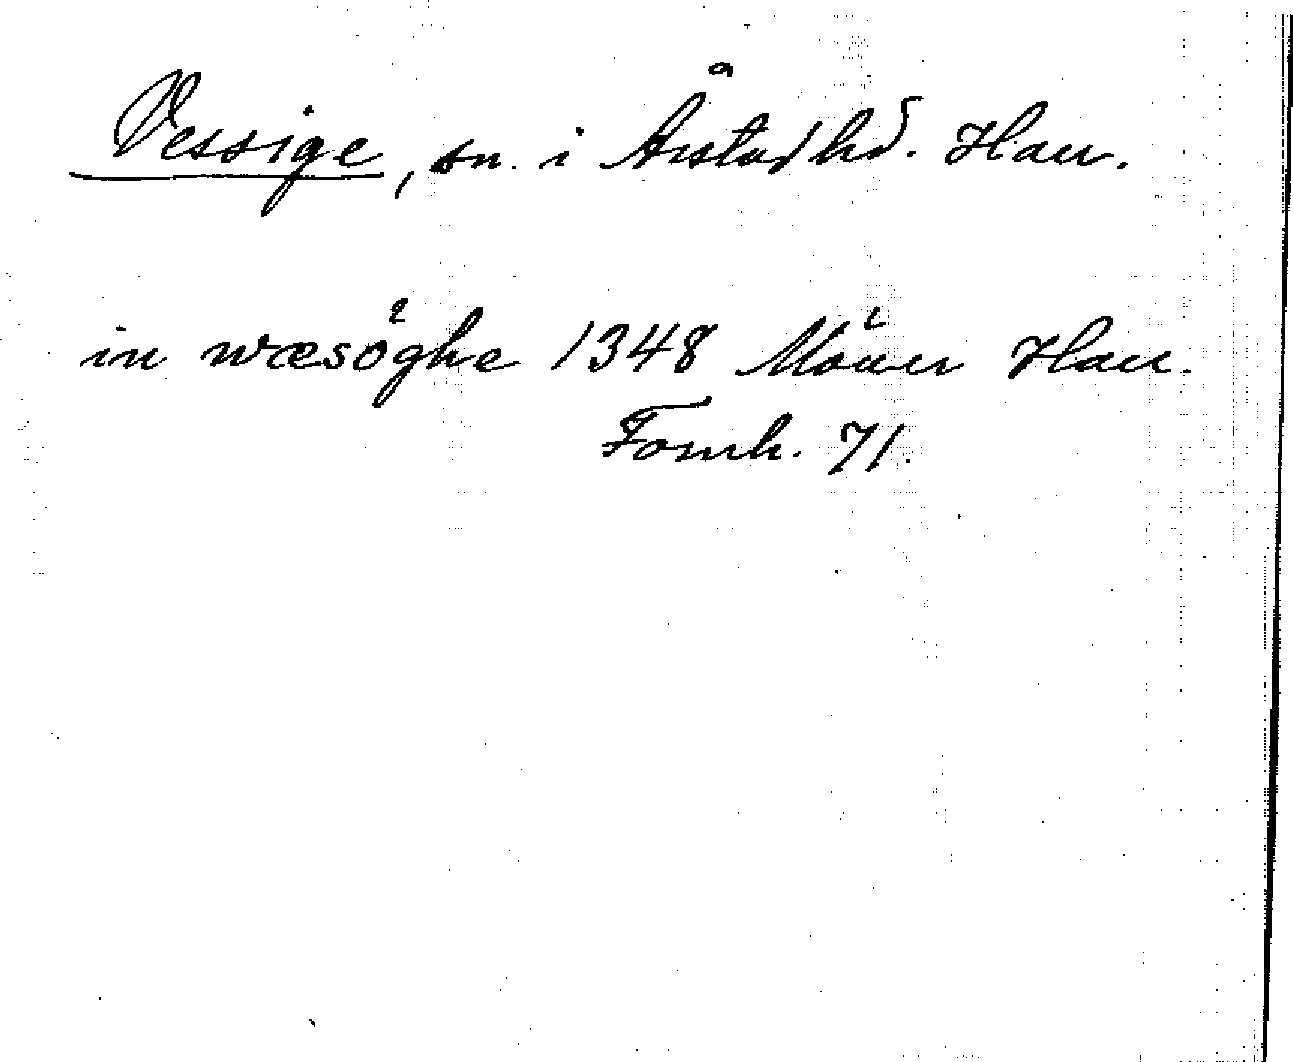 Vessige, sn. i Årstad hd. Hall.
in wæsöghe 1348 Möller Hall.
Fornh. 71.